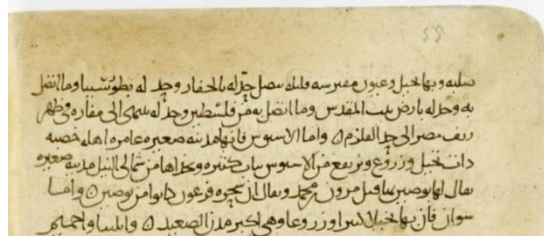 سليه وبها نخيل وعيون مفترسه وقليله متصل حد له بالجفار وحد له بطور سينا وما اتصل
به وحد له بارض بيت المقدس وما اتصل به من فلسطين وحد له ينتهى الى مفازه فى ظهر
ريف مصر الى حد القلزم ٥ واما الاسوس فانها مدينه صغيره عامره اهله خصبه
ذات نخيل وزروع ويرتفع من الاسوس ثياب كثيره وبحذاها من شمالى النيل مدينه صغيره
يقال لها بوصير بها قتل مرون بن محمد ويقال ان سحره فرعون كانوا من بوصير ٥ واما
سوان فان بها نخيلا كثيرا وزروعا وهى اكبر مدن الصعيد ٥ واسنا واخميم